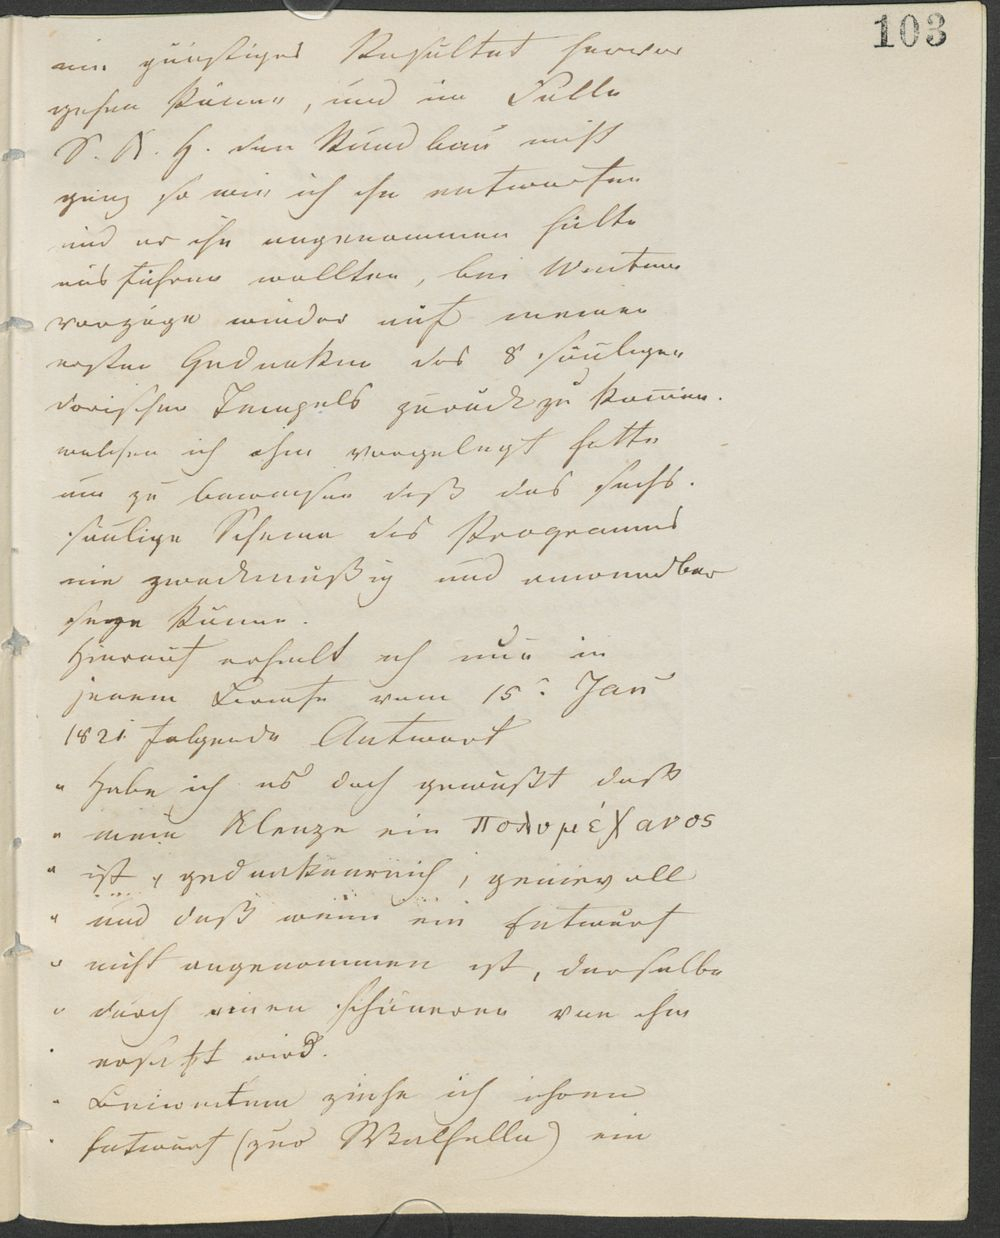 103
ein günstiges Resultat hervor
gehen könne, und im Falle
S. K. H. den Rundbau nicht
ganz so wie ich ihn entworfen
und er ihn angenommen hätte
ausführen wollten, bei Weitem
vorzöge wieder auf meinen
ersten Gedanken des 8 säuligen
dorischen Tempels zurück zu kom̅en.
welchen ich ihm vorgelegt hatte
um zu beweisen daß das sechs-
säulige Schema des Programms
nie zweckmäßig und anwendbar
seyn könne.
Hierauf erhielt ich nun in
jenem Briefe vom 15t Jan
1821 folgende Antwort
„ Habe ich es doch gewußt daß
„ mein Klenze ein πολυμέχανος
„ ist, gedankenreich, genievoll
„ und daß wenn ein Entwurf
„ nicht angenommen ist, derselbe
„ durch einen schöneren von ihm
„ ersetzt wird.
„ Beiweitem ziehe ich ihren
„ Entwurf (zur Walhalla) ein